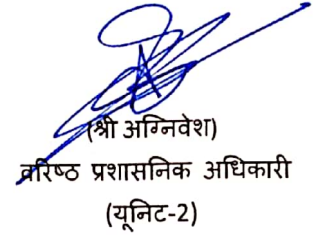 (श्री अग्निवेश)
वरिष्ठ प्रशासनिक अधिकारी
(यूनिट-2)